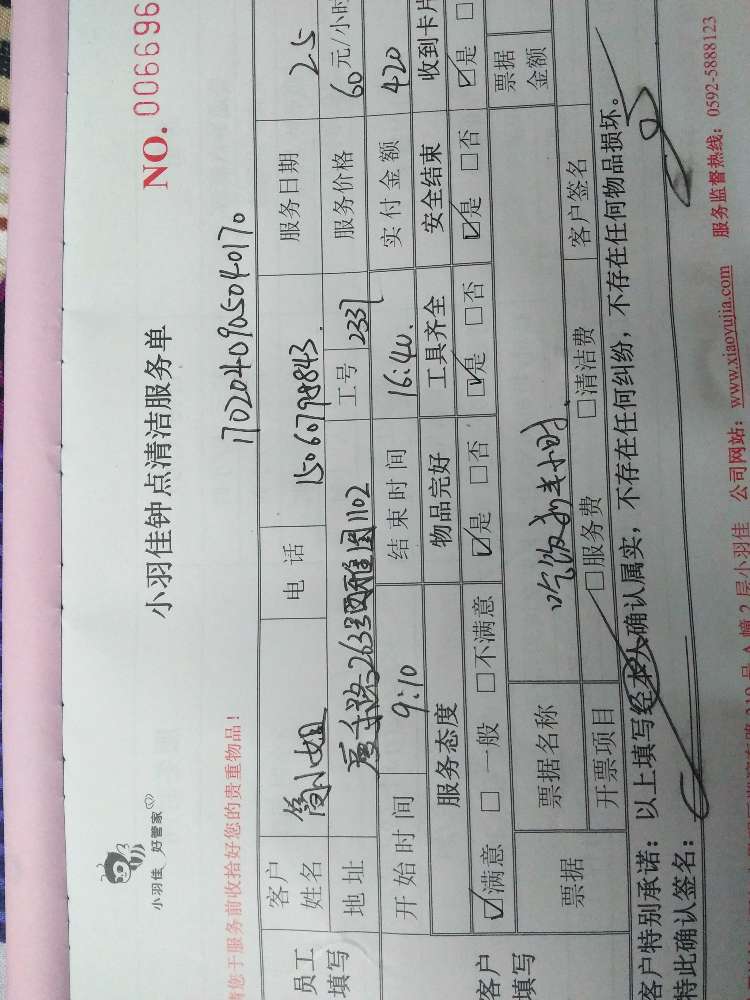 小羽佳 好管家
小羽佳钟点清洁服务单
NO. 006696
请您于服务前收拾好您的贵重物品！
1702040905040170
员工填写
客户姓名 简小姐 电话 15060798843 服务日期 25
地址 263 雅园1102 工号 2337 服务价格 60元/小时
开始时间 9:10 结束时间 16:40 实付金额 420
客户填写
服务态度 物品完好 工具齐全 安全结束 收到卡片
☑满意 □一般 □不满意 ☑是 □否 ☑是 □否 ☑是 □否 ☑是 □
票据 票据名称 吃饭 半小时 票据金额
开票项目 □服务费 □清洁费 客户签名
客户特别承诺：以上填写经本人确认属实，不存在任何纠纷，不存在任何物品损坏。
特此确认签名：
层小羽佳 公司网站：www.xiaoyujia.com 服务监督热线：0592-5888123